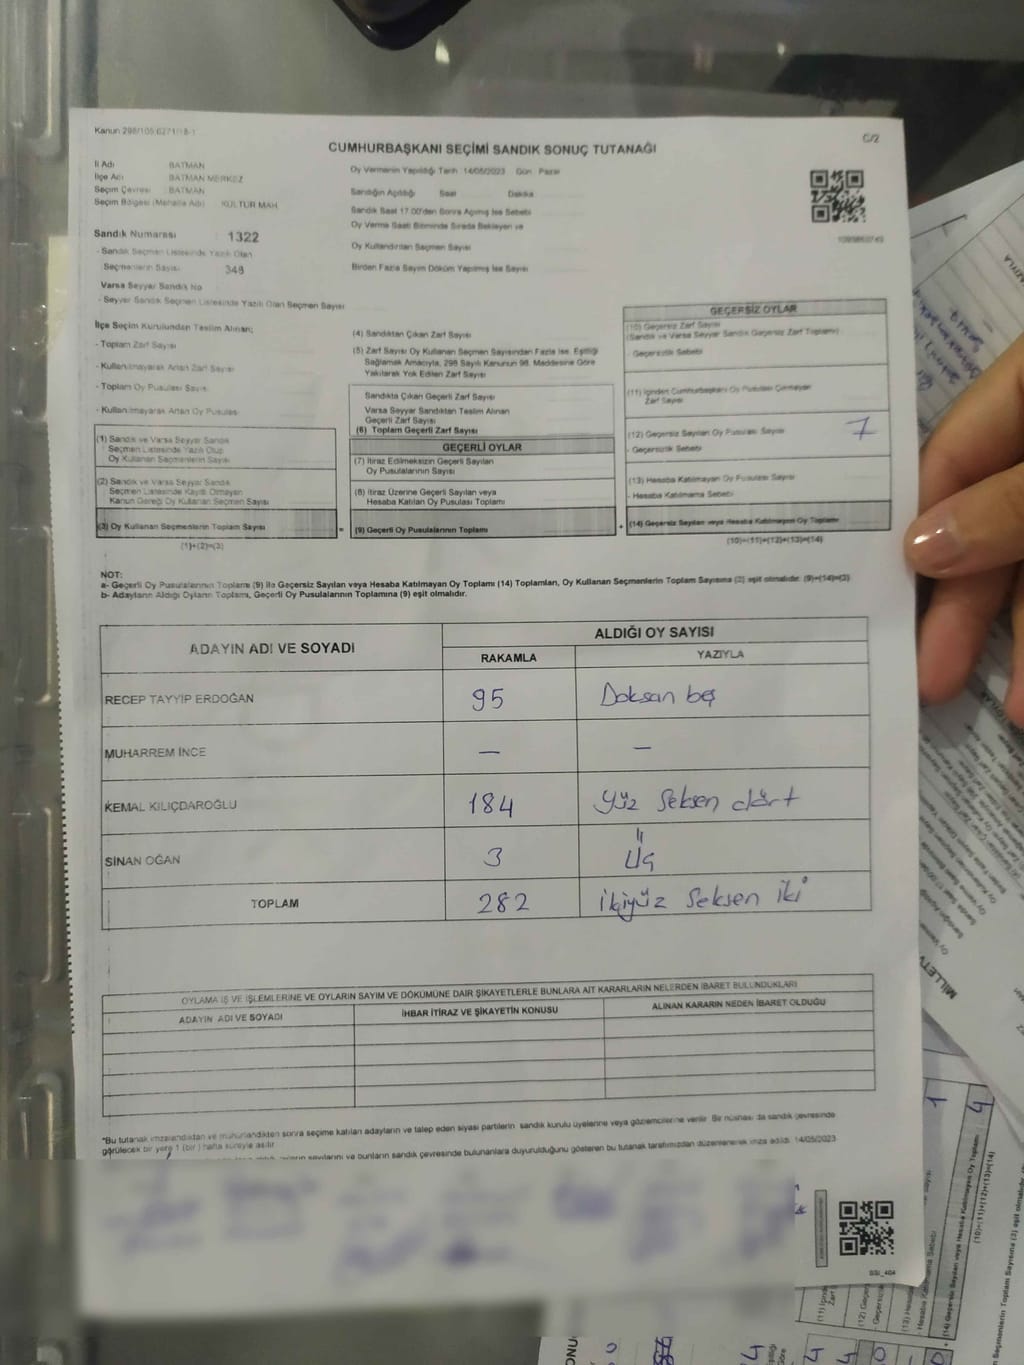 Kanun 298/105;6271/18-1
C/2
CUMHURBAŞKANI SEÇİMİ SANDIK SONUÇ TUTANAĞI
İl Adı BATMAN
İlçe Adı BATMAN MERKEZ
Seçim Çevresi BATMAN
Seçim Bölgesi (Mahalle Adı) KÜLTÜR MAH.
Sandık Numarası 1322
- Sandık Seçmen Listesinde Yazılı Olan
Seçmenlerin Sayısı 348
Varsa Seyyar Sandık No
- Seyyar Sandık Seçmen Listesinde Yazılı Olan Seçmen Sayısı
Oy Vermenin Yapıldığı Tarih 14/05/2023 Gün Pazar
Sandığın Açıldığı Saat Dakika
Sandık Saat 17.00'den Sonra Açılmış İse Sebebi
Oy Verme Saati Bitiminde Sırada Bekleyen ve
Oy Kullandırılan Seçmen Sayısı
Birden Fazla Sayım Döküm Yapılmış İse Sayısı
İlçe Seçim Kurulundan Teslim Alınan;
- Toplam Zarf Sayısı
- Kullanılmayarak Artan Zarf Sayısı
- Toplam Oy Pusulası Sayısı
- Kullanılmayarak Artan Oy Pusulası
(1) Sandık ve Varsa Seyyar Sandık
Seçmen Listesinde Yazılı Olup
Oy Kullanan Seçmenlerin Sayısı
(2) Sandık ve Varsa Seyyar Sandık
Seçmen Listesinde Kayıtlı Olmayan
Kanun Gereği Oy Kullanan Seçmen Sayısı
(3) Oy Kullanan Seçmenlerin Toplam Sayısı
(1)+(2)=(3)
(4) Sandıktan Çıkan Zarf Sayısı
(5) Zarf Sayısı Oy Kullanan Seçmen Sayısından Fazla İse, Eşitliği
Sağlamak Amacıyla, 298 Sayılı Kanunun 98. Maddesine Göre
Yakılarak Yok Edilen Zarf Sayısı
Sandıkta Çıkan Geçerli Zarf Sayısı
Varsa Seyyar Sandıktan Teslim Alınan
Geçerli Zarf Sayısı
(6) Toplam Geçerli Zarf Sayısı
GEÇERLİ OYLAR
(7) İtiraz Edilmeksizin Geçerli Sayılan
Oy Pusulalarının Sayısı
(8) İtiraz Üzerine Geçerli Sayılan veya
Hesaba Katılan Oy Pusulası Toplamı
= (9) Geçerli Oy Pusulalarının Toplamı
GEÇERSİZ OYLAR
(10) Geçersiz Zarf Sayısı
(Sandık ve Varsa Seyyar Sandık Geçersiz Zarf Toplamı)
- Geçersizlik Sebebi
(11) İçinden Cumhurbaşkanı Oy Pusulası Çıkmayan
Zarf Sayısı
(12) Geçersiz Sayılan Oy Pusulası Sayısı 7
- Geçersizlik Sebebi
(13) Hesaba Katılmayan Oy Pusulası Sayısı
- Hesaba Katılmama Sebebi
+ (14) Geçersiz Sayılan veya Hesaba Katılmayan Oy Toplamı
(10)+(11)+(12)+(13)=(14)
NOT:
a- Geçerli Oy Pusulalarının Toplamı (9) ile Geçersiz Sayılan veya Hesaba Katılmayan Oy Toplamı (14) Toplamları, Oy Kullanan Seçmenlerin Toplam Sayısına (3) eşit olmalıdır. (9)+(14)=(3)
b- Adayların Aldığı Oyların Toplamı, Geçerli Oy Pusulalarının Toplamına (9) eşit olmalıdır.
ADAYIN ADI VE SOYADI
ALDIĞI OY SAYISI
RAKAMLA YAZIYLA
RECEP TAYYİP ERDOĞAN 95 Doksan beş
MUHARREM İNCE — —
KEMAL KILIÇDAROĞLU 184 Yüz Seksen dört
SİNAN OĞAN 3 Üç
TOPLAM 282 İkiyüz Seksen iki
OYLAMA İŞ VE İŞLEMLERİNE VE OYLARIN SAYIM VE DÖKÜMÜNE DAİR ŞİKAYETLERLE BUNLARA AİT KARARLARIN NELERDEN İBARET BULUNDUKLARI
ADAYIN ADI VE SOYADI İHBAR İTİRAZ VE ŞİKAYETİN KONUSU ALINAN KARARIN NEDEN İBARET OLDUĞU
*Bu tutanak imzalandıktan ve mühürlendikten sonra seçime katılan adayların ve talep eden siyasi partilerin sandık kurulu üyelerine veya gözlemcilerine verilir. Bir nüshası da sandık çevresinde
görülecek bir yere 1 (bir) hafta süreyle asılır.
sayılarını ve bunların sandık çevresinde bulunanlara duyurulduğunu gösteren bu tutanak tarafımızdan düzenlenerek imza edildi. 14/05/2023